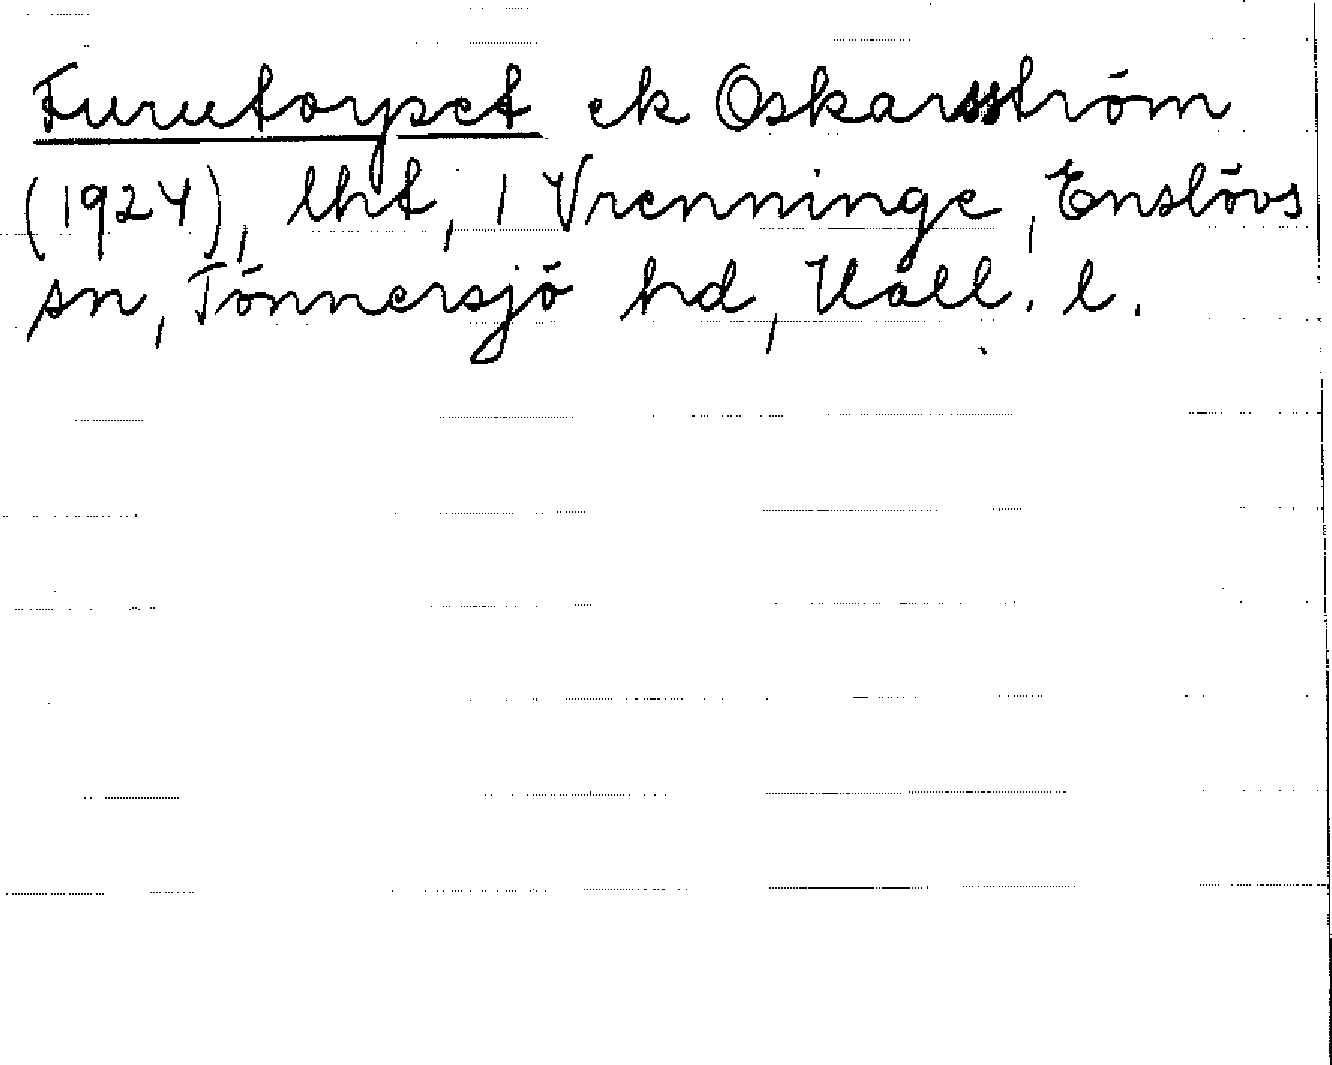 Furutorpet ek Oskarsström
(1924), lht, 1 Vrenninge, Enslövs
sn, Tönnersjö hd, Hall. l.